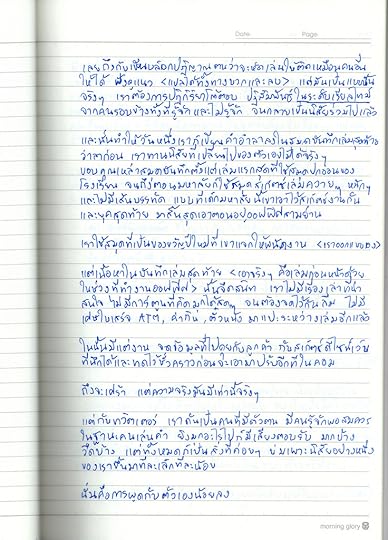 Date Page
เลยถึงกับเขียนบล็อกปฏิญาณตนว่าจะเล่นให้ติดเหมือนคนอื่น
ให้ได้ แต่มันเป็นแบบนั้น
จริงๆ เราต้องการปฏิกิริยาโต้ตอบ ปฏิสัมพันธ์ในระดับเรียลไทม์
จากคนรอบข้างทั้งที่รู้จัก และไม่รู้จัก จนกลายเป็นนิสัยร่วมไปแล้ว
และนั่นทำให้วันหนึ่งเราก็เขียนคำอำลาลงในสมุดบันทึกเล่มสุดท้าย
ว่าลาก่อน เราทานนิสัยที่เปลี่ยนไปของตัวเองไม่ได้จริงๆ
ขอบคุณเหล่าสมุดบันทึกตั้งแต่เล่มแรกสุดที่ใช้สมุดปกอ่อนของ
โรงเรียน จนถึงตอนมหาลัยก็ใช้สมุดสเก็ตช์เล่มควายๆ หนักๆ
และไม่มีเส้นบรรทัด แบบที่เด็กมหาลัยนี้เขาเอาไว้สเก็ตช์งานกัน
และยุคสุดท้าย มาสิ้นสุดเอาตอนอยู่ออฟฟิศสามย่าน
เราใช้สมุดที่เป็นของขวัญปีใหม่ที่เขาแจกให้พนักงาน <เราออกแบบเอง>
แต่เนื้อหาในบันทึกเล่มสุดท้าย <เอาจริงๆ คือเล่มก่อนหน้าด้วย
ในช่วงที่ทำงานออฟฟิศ> นั้นจืดสนิท เราไม่มีเรื่องเล่าที่น่า
สนใจ ไม่มีการ์ตูนที่คิดมุกได้สดๆ จนต้องจดไว้กันลืม ไม่มี
เศษใบเสร็จ ATM, ค่ากิน, ตั๋วหนัง มาแปะระหว่างเล่มอีกแล้ว
ในนั้นมีแต่งาน จดข้อมูลที่ไปคุยกับลูกค้า กับสเก็ตช์ดีไซน์เว็บ
ที่นึกได้และทดไว้ชั่วคราวก่อนจะเอามาปรับอีกทีในคอม
ถึงจะเศร้า แต่ความจริงมันมีเท่านี้จริงๆ
แต่กับทวิตเตอร์ เราดันเป็นคนที่มีตัวตน มีคนรู้จักพอสมควร
ในฐานะคนเล่นคำ จึงมีอะไรไปก็มีเสียงตอบรับ มากบ้าง
วืดบ้าง แต่ทั้งหมดก็เป็นสิ่งที่ค่อยๆ บ่มเพาะนิสัยอย่างหนึ่ง
ของเราขึ้นมาทีละเล็กทีละน้อย
นั่นคือการพูดกับตัวเองน้อยลง
morning glory